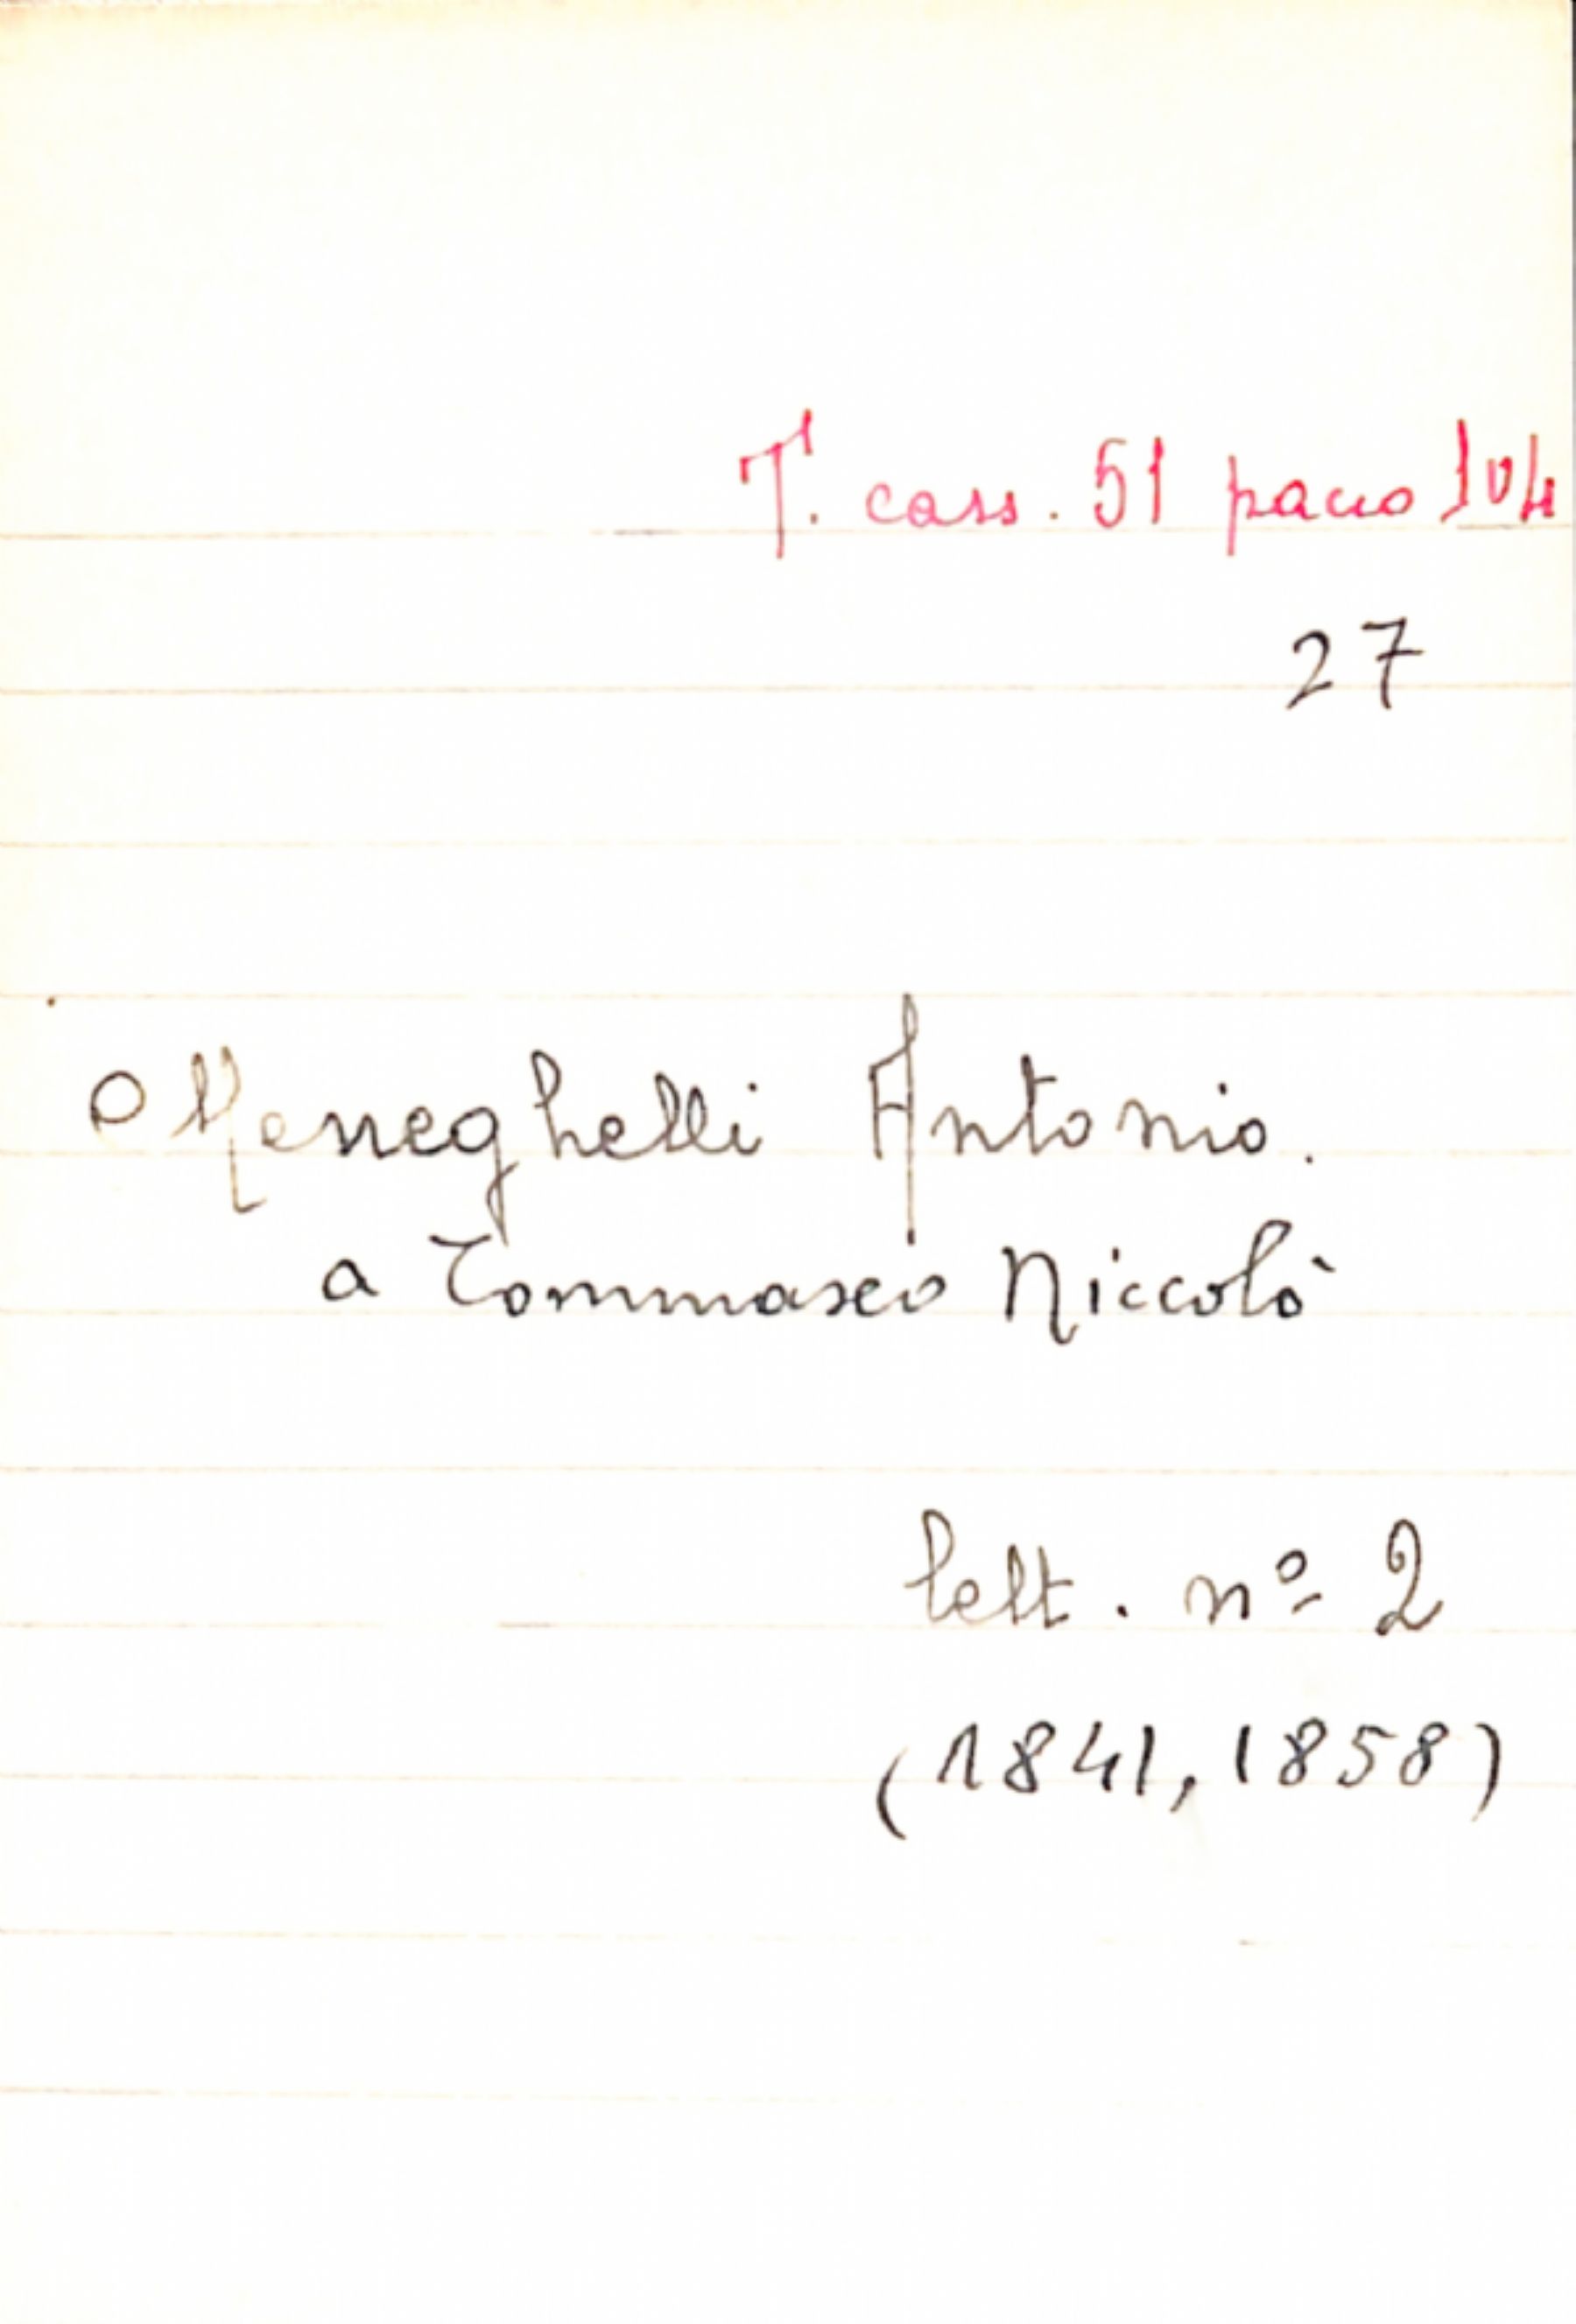 T. cass. 51 pacco 104
27
Meneghelli Antonio.
a Tommaseo Niccolò
lett. nº 2
(1841, 1858)